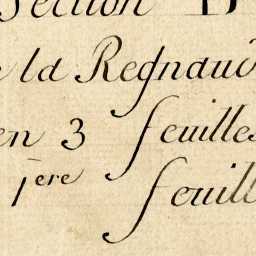 Section D
la Regnaud
en 3 feuilles
1ere feuill